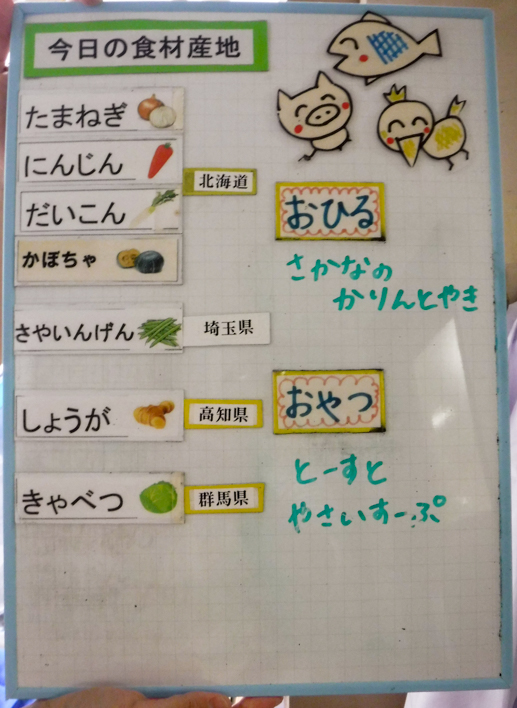 今日の食材産地
たまねぎ
にんじん
北海道
だいこん
かぼちゃ
さやいんげん
埼玉県
しょうが
高知県
きゃべつ
群馬県
おひる
さかなの
かりんとやき
おやつ
とーすと
やさいすーぷ